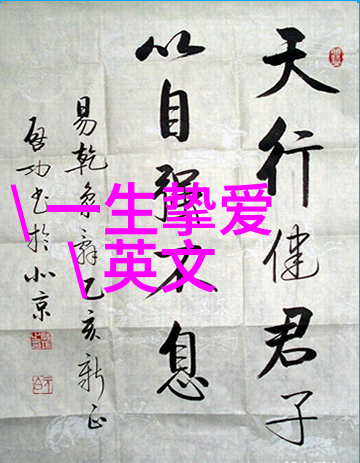 天行健君子
以自强不息
易乾象辞乙亥新正
启功书於北京
\一生挚爱
\英文